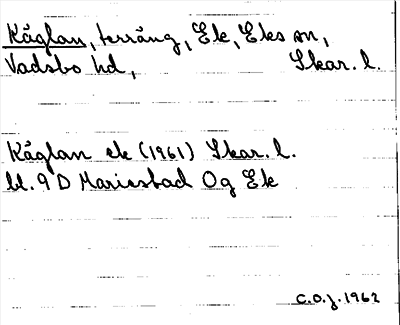 Kåglan, terräng, Ek, Eks sn,
Vadsbo hd, Skar. l.
Kåglan ek (1961) Skar. l.
bl. 9 D Mariestad Og Ek
C.O.J. 1962